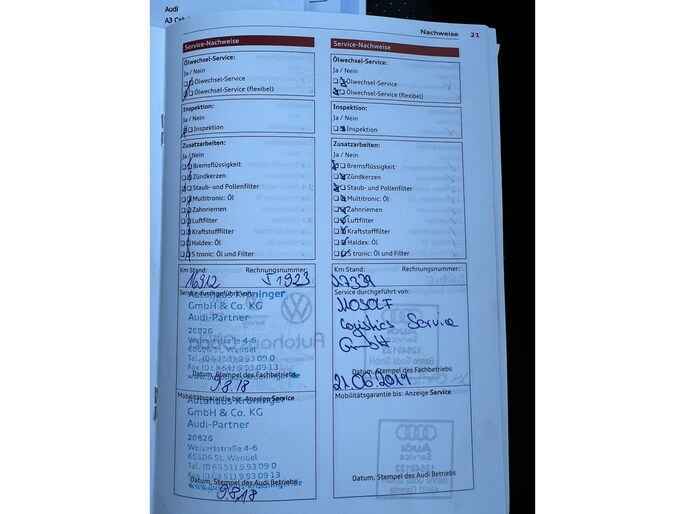 Audi
A3 Cab
Nachweise 21
Service-Nachweise
Ölwechsel-Service:
Ja / Nein
Ölwechsel-Service
Ölwechsel-Service (flexibel)
Inspektion:
Ja / Nein
Inspektion
Zusatzarbeiten:
Ja / Nein
Bremsflüssigkeit
Zündkerzen
Staub- und Pollenfilter
Multitronic: Öl
Zahnriemen
Luftfilter
Kraftstofffilter
Haldex: Öl
S tronic: Öl und Filter
Km Stand: Rechnungsnummer:
16912 51923
Service durchgeführt von:
Autohaus Kröninger
GmbH & Co. KG
Audi-Partner
20826
Welvertstraße 4-6
66606 St. Wendel
Tel. (0 68 51) 9 93 09 0
Fax (0 68 51) 9 93 09 30
Datum, Stempel des Fachbetriebs
9.8.18
Mobilitätsgarantie bis: Anzeige Service
Autohaus Kröninger
GmbH & Co. KG
Audi-Partner
20826
Welvertstraße 4-6
66606 St. Wendel
Tel. (0 68 51) 9 93 09 0
Fax (0 68 51) 9 93 09 30
Datum, Stempel des Audi Betriebs
9.8.18
Service-Nachweise
Ölwechsel-Service:
Ja / Nein
Ölwechsel-Service
Ölwechsel-Service (flexibel)
Inspektion:
Ja / Nein
Inspektion
Zusatzarbeiten:
Ja / Nein
Bremsflüssigkeit
Zündkerzen
Staub- und Pollenfilter
Multitronic: Öl
Zahnriemen
Luftfilter
Kraftstofffilter
Haldex: Öl
S tronic: Öl und Filter
Km Stand: Rechnungsnummer:
Service durchgeführt von:
MOSOLF
Logistics Service
GmbH
Datum, Stempel des Fachbetriebs
21.06.2019
Mobilitätsgarantie bis: Anzeige Service
Datum, Stempel des Audi Betriebs